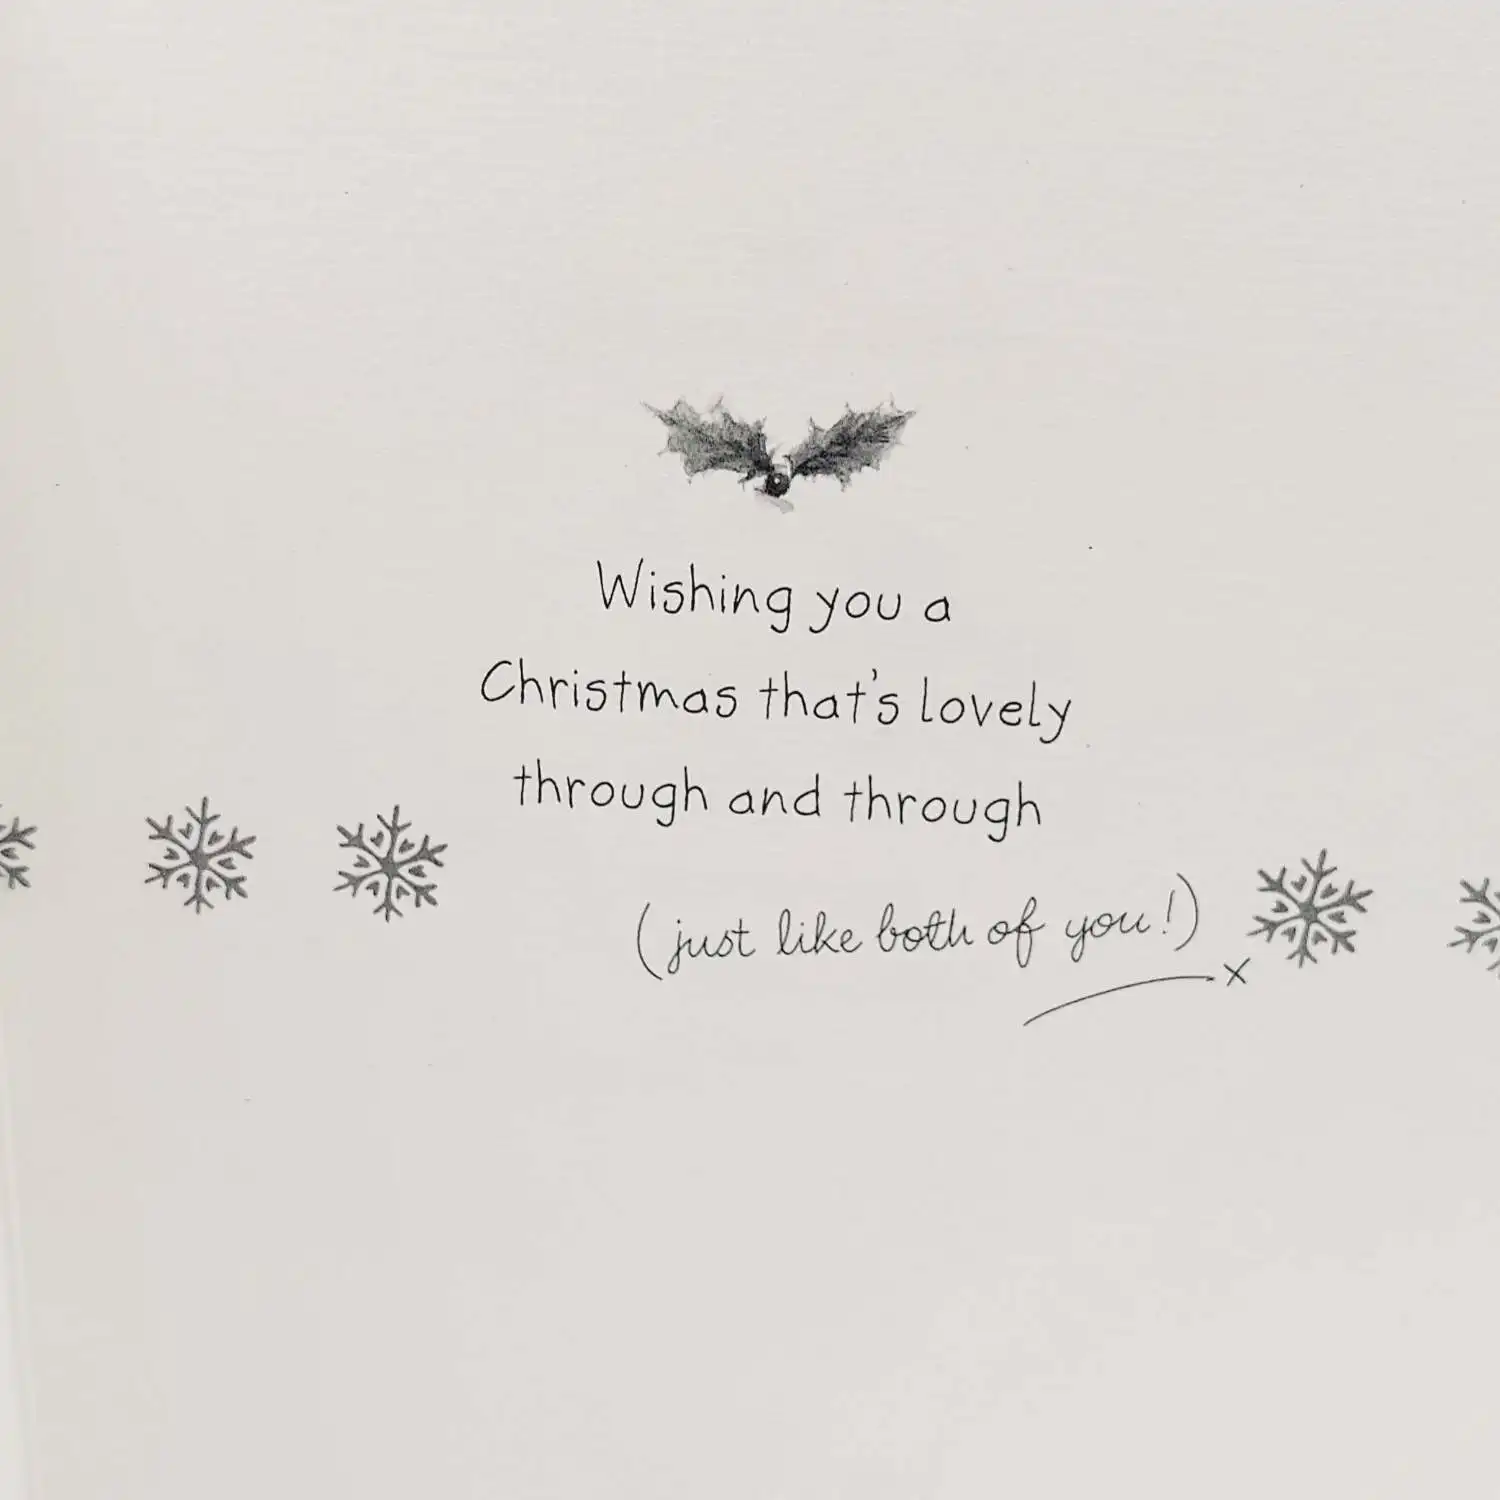 Wishing you a
Christmas that's lovely
through and through
(just like both of you!)
x